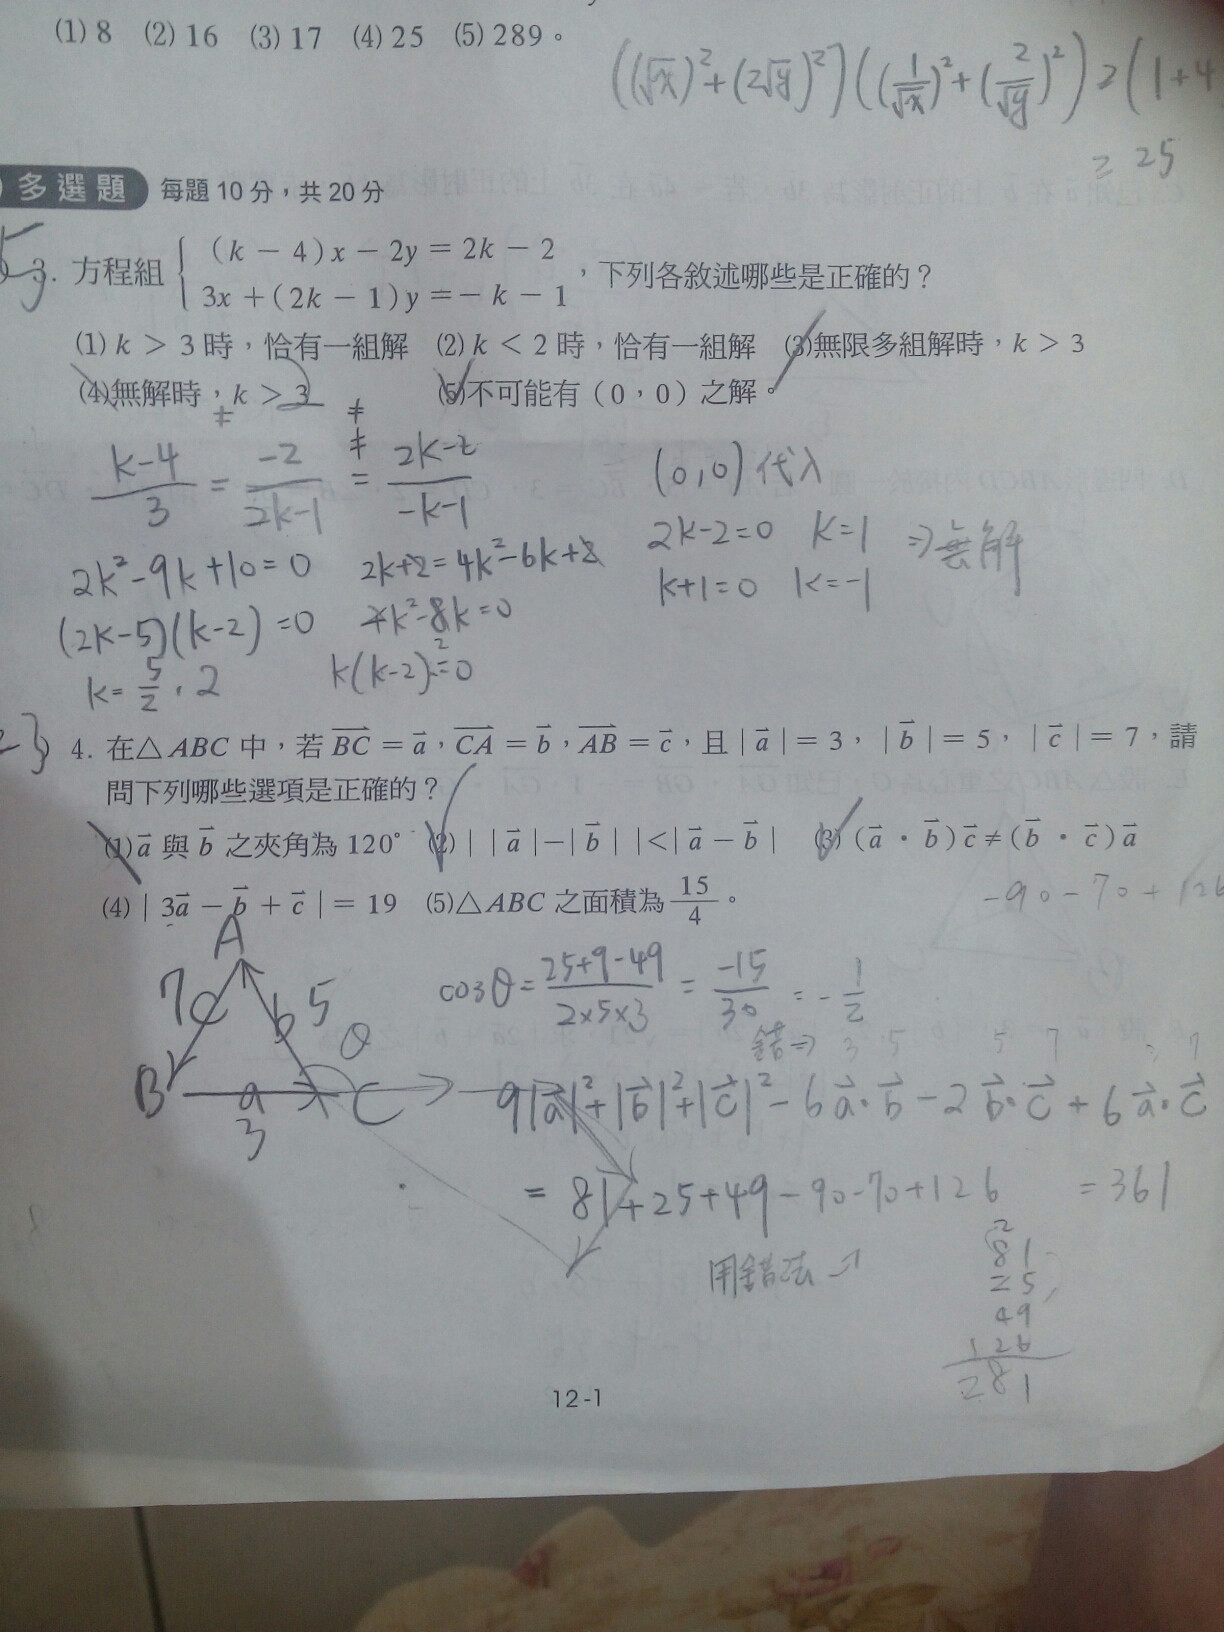 (1) 8 (2) 16 (3) 17 (4) 25 (5) 289。
((√x)²+(2√y)²)((1/√x)²+(2/√y)²) ≥ (1+4
≥ 25
多選題 每題 10 分，共 20 分
3. 方程組 { (k − 4)x − 2y = 2k − 2
3x + (2k − 1)y = − k − 1 ，下列各敘述哪些是正確的？
(1) k > 3 時，恰有一組解 (2) k < 2 時，恰有一組解 (3)無限多組解時，k > 3
(4)無解時，k > 3 (5)不可能有（0，0）之解。
≠ ≠
k-4/3 = -2/2k-1 = 2k-2/-k-1
≠
(0,0)代入
2k-2=0 k=1 ⇒無解
k+1=0 k=-1
2k²-9k+10=0 2k+2=4k²-6k+2
(2k-5)(k-2)=0 4k²-8k=0
k=5/2，2 k(k-2)=0
2
4. 在△ABC 中，若 BC = a，CA = b，AB = c，且 | a | = 3， | b | = 5， | c | = 7，請
問下列哪些選項是正確的？
(1) a 與 b 之夾角為 120° (2) | | a | − | b | | < | a − b | (3) (a · b) c ≠ (b · c) a
(4) | 3a − b + c | = 19 (5)△ABC 之面積為 15/4。
-90-70+126
A
7 c b 5 θ
B a C
3
cosθ= 25+9-49/2×5×3 = -15/30 = -1/2
錯⇒ 3 5 5 7 7
9|a|²+|b|²+|c|²-6a·b-2b·c+6a·c
= 81+25+49-90-70+126 =361
用錯法
2
81
25
49
126
281
12-1